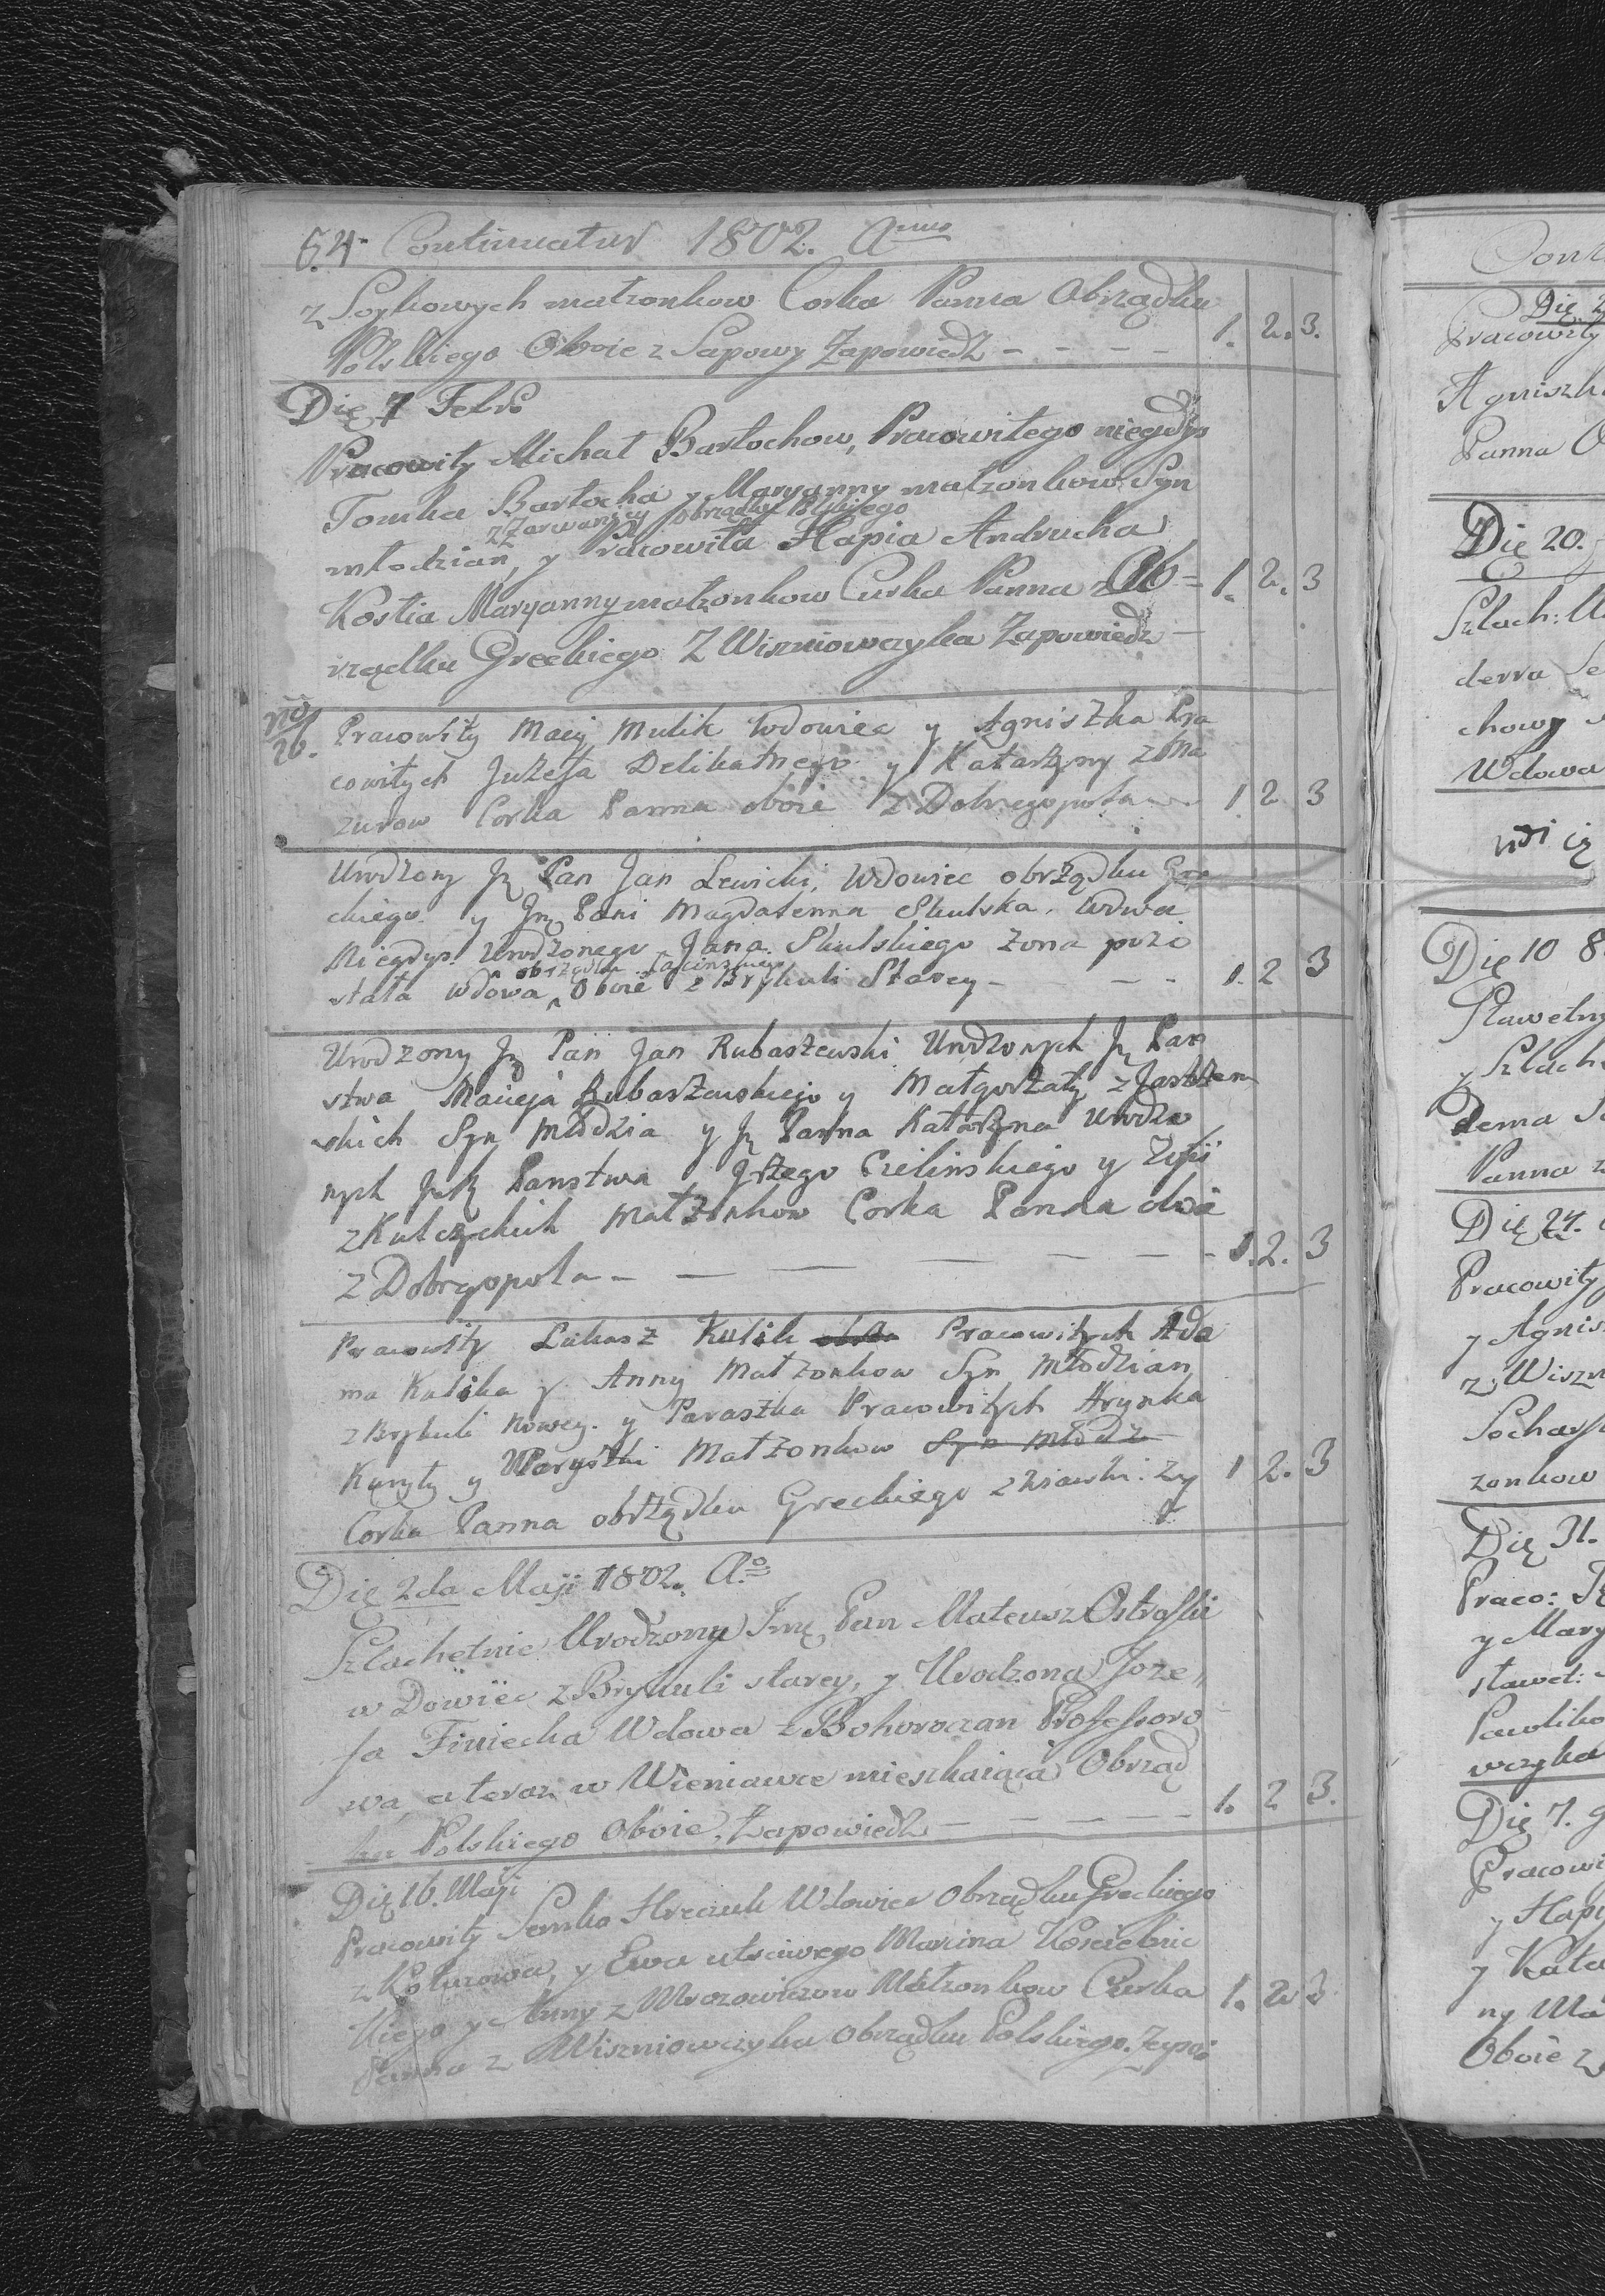 64 Continuatur 1802. Anno
z Soykowych małzonkow Corka Panna Obrządku
Polskiego Oboie z Sapowy Zapowiedz - - - - 1. 2. 3.
Dię 7 Febr
Pracowity Michał Bartochow, Pracowitego niegdys
Tomka Bartocha y Maryanny małzonkow Syn
z Zarwanicy obrządku Polskiego
młodzian, y Pracowita Hapia Andrucha
Kostia Maryanny małzonkow Curka Panna z Ob= 1. 2. 3
rządku Greckiego Z Wiszniowczyka Zapowiedz -
No 26. Pracowity Maciy Mulik Wdowiec y Agniszka Pra
cowitych Juzefa Delikatnego y Katarzyny z Ma
zurow Corka Panna oboie z Dobregopola 1 2 3
Urodzony Ję Pan Jan Lewicki, Wdowiec obrządku Gre
ckiego y Imę Pani Magdalenna Skulska. Wdwa
Niegdys. Urodzonego Jana Skulskiego zona pozo
obrządku Łacinskiego
stała wdowa ^ Oboie z Brykuli Starey - - - 1. 2 3
Urodzony Ję Pan Jan Rubaszewski Urodzonych Ję Pan
stwa Macieja Rubaszewskiego y Małgorzaty z Jastrzem
skich Syn Młodzia y Ję Panna Katarzyna Urodzo
nych Panstwa Grzego Cielinskiego y Zofii
z Kulczyckich Małzonkow Corka Panna oboie
z Dobregopola - - - - - - - 1. 2. 3
Pracowity Łukasz Kulik Pracowitych Ada
ma Kulika y Anny Małzonkow Syn Młodzian
z Brykuli Nowey. y Paraszka Pracowitych Hrynka
Kuryły y Maryszki Małzonkow Syn młodz
Corka Panna obrządku Greckiego 1 2. 3
Dię 2da Maji 1802. Ao
Szlachetnie Urodzony Imę Pan Mateusz Ostroski
w Dowiec z Brykuli starey, y Urodzona Joze,,
fa Finiecka Wdowa z Bohoroczan Professoro
wa, a teraz w Wieniawce mieszkaiąca Obrząd
ku Polskiego Oboie, Zapowiedz - - - - - 1. 2 3.
Dię 16. Maji
Pracowity Semko Hreczuk Wdowiec Obrządku Greckiego
z Koturowa, y Ewa utsciwego Marcina Kosciebnic
kiego y Anny z Mrozowiczow Małzonkow Curka 1. 2 3
Panna z Wiszniowczyka Obrządku Polskiego. Zapo
Dię 20.
Szlach:
Wdowa
Dię 10 8
Panna
Dię 24.
Pracowity
zonkow
Dię 31.
Praco:
y Mary
Dię 7.
Oboie z